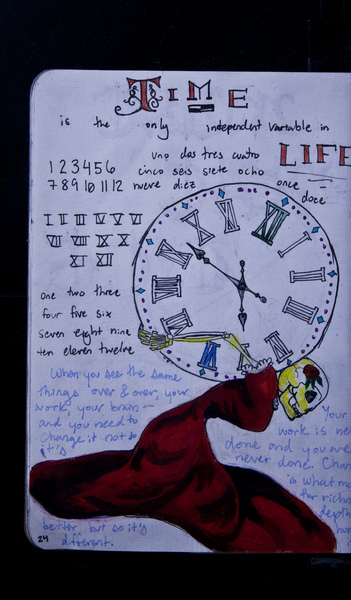 TIME
is the only independent variable in
LIFE
uno dos tres cuatro
1 2 3 4 5 6 cinco seis siete ocho
7 8 9 10 11 12 nueve diez once
doce
I II III IV V VI
VII VIII IX X
XI XII
one two three
four five six
seven eight nine
ten eleven twelve
When you see the same
things over & over, your
work, your brain—
and you need to
change it not so
it's
better, but so it's
different.
Your
work is
done and you are
never done.
is what
for
depth
24